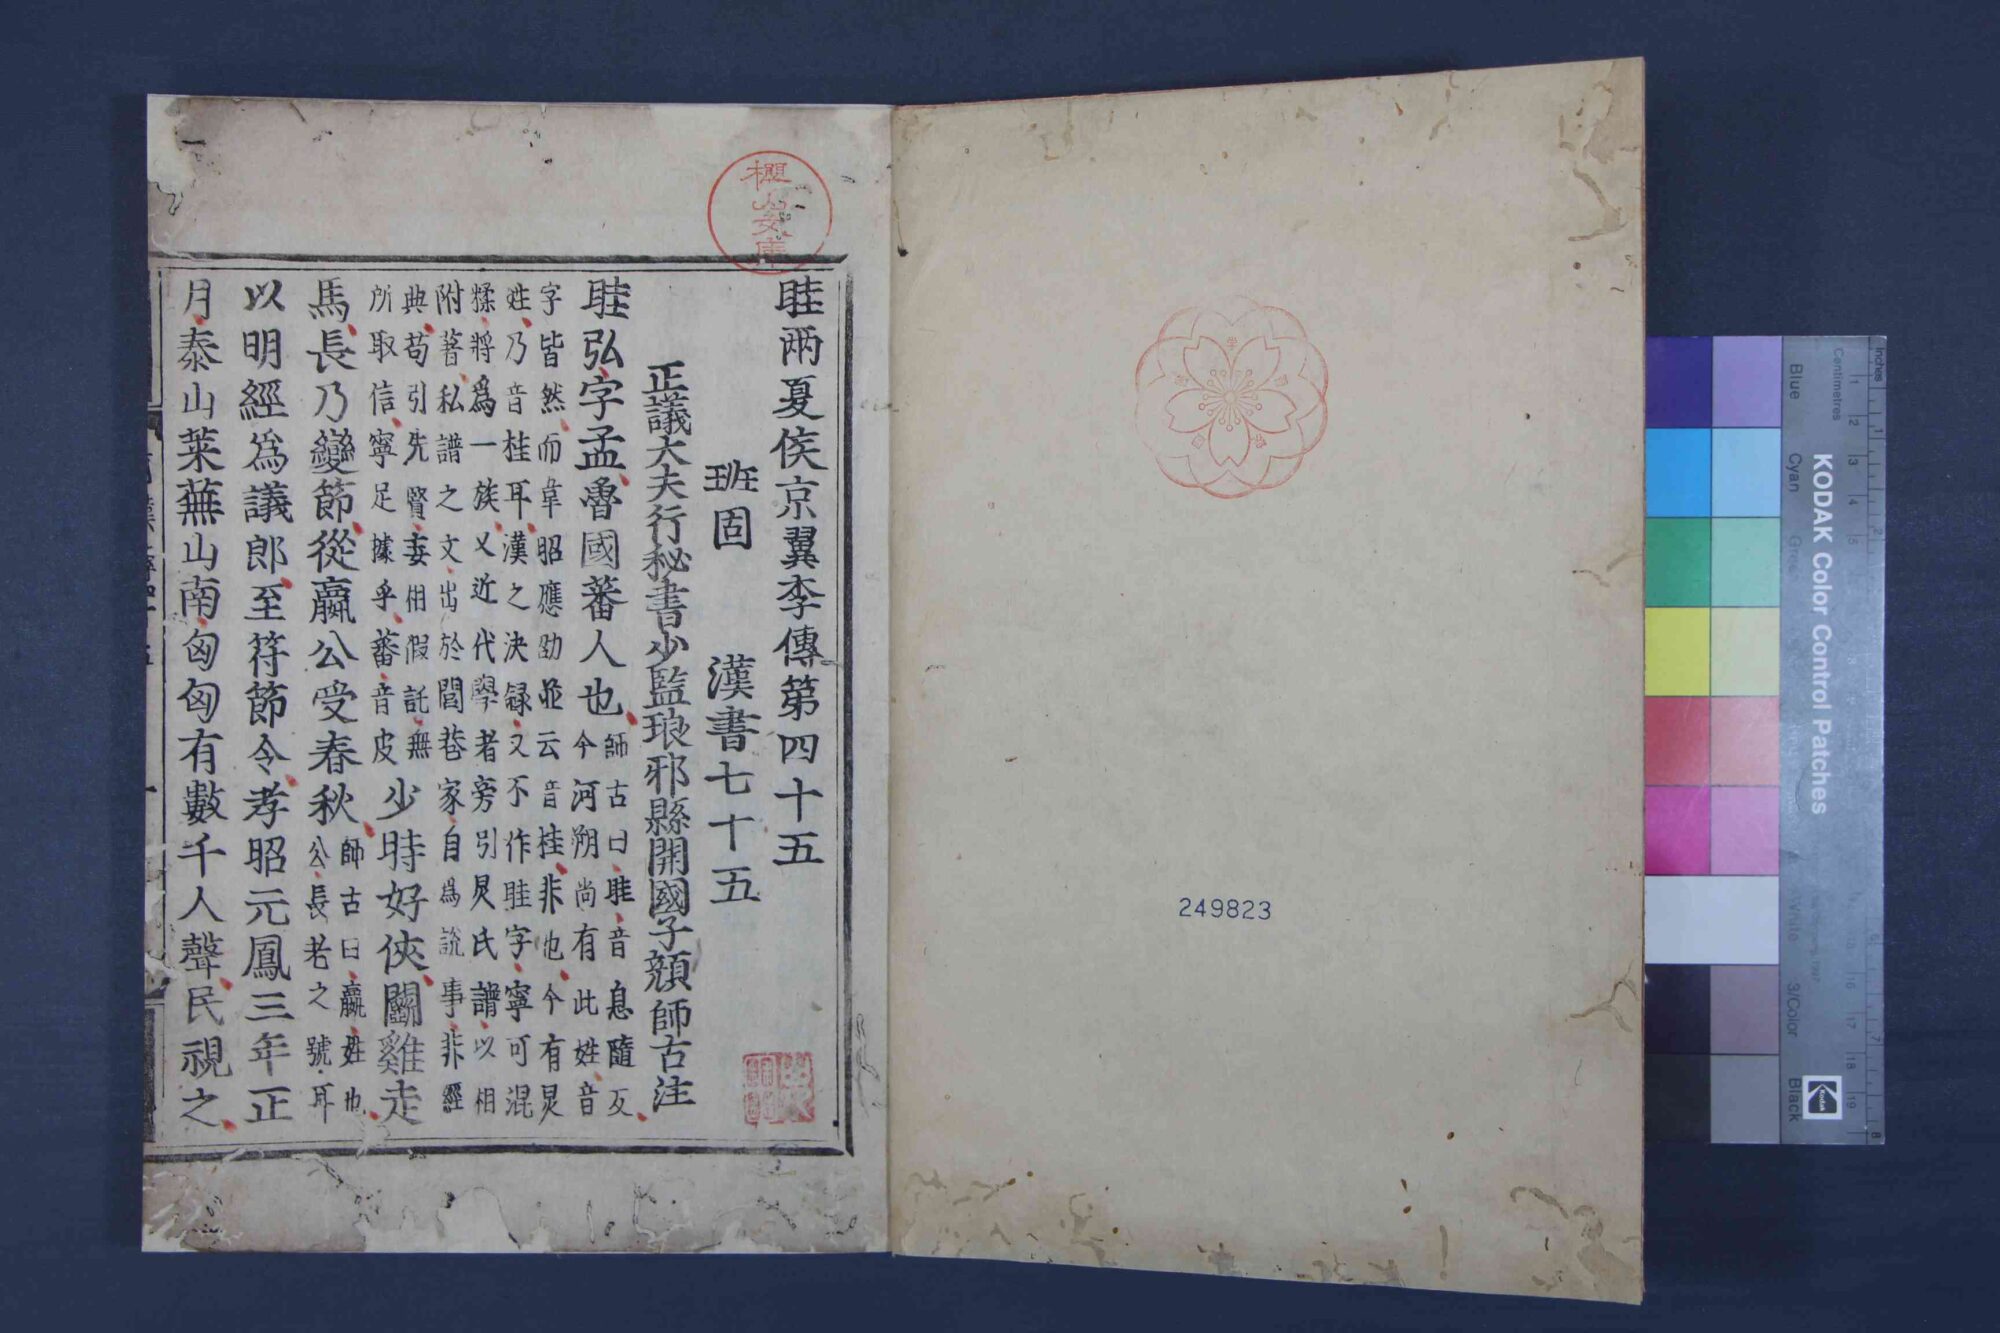 眭兩夏侯京翼李傳第四十五
班固 漢書七十五
正議大夫行秘書少監琅邪縣開國子顔師古注
眭弘字孟魯國蕃人也師古曰眭音息隨反
今河朔尚有此姓音
字皆然而韋昭應劭並云音桂非也今有炅
姓乃音桂耳漢之決録又不作眭字寧可混
糅將爲一族又近代學者旁引炅氏譜以相
附著私譜之文出於閭巷家自爲說事非經
典苟引先賢妄相假託無
所取信寧足據乎蕃音皮
少時好俠鬭雞走
馬長乃變節從嬴公受春秋師古曰嬴姓也
公長老之號耳
以明經爲議郎至符節令孝昭元鳳三年正
月泰山萊蕪山南匈匈有數千人聲民視之
櫻山文庫
249823
KODAK Color Control Patches
Blue
Cyan
Green
White
3/Color
Black
Inches
Centimetres
Kodak